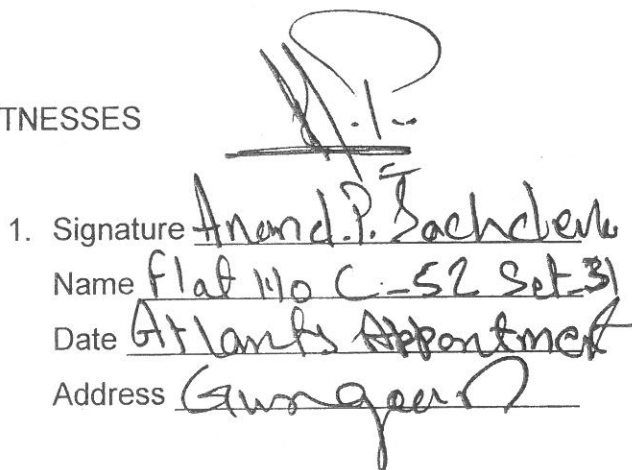 TNESSES
1. Signature Anand.P. Sachdeva
Name Flat No C-52 Sct-31
Date Atlants Appontment
Address Gurgaon